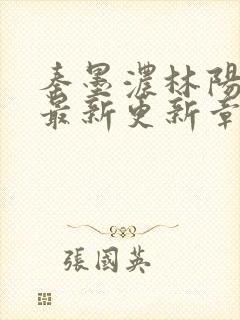 秦墨濃林陽
最新更新章
張國英